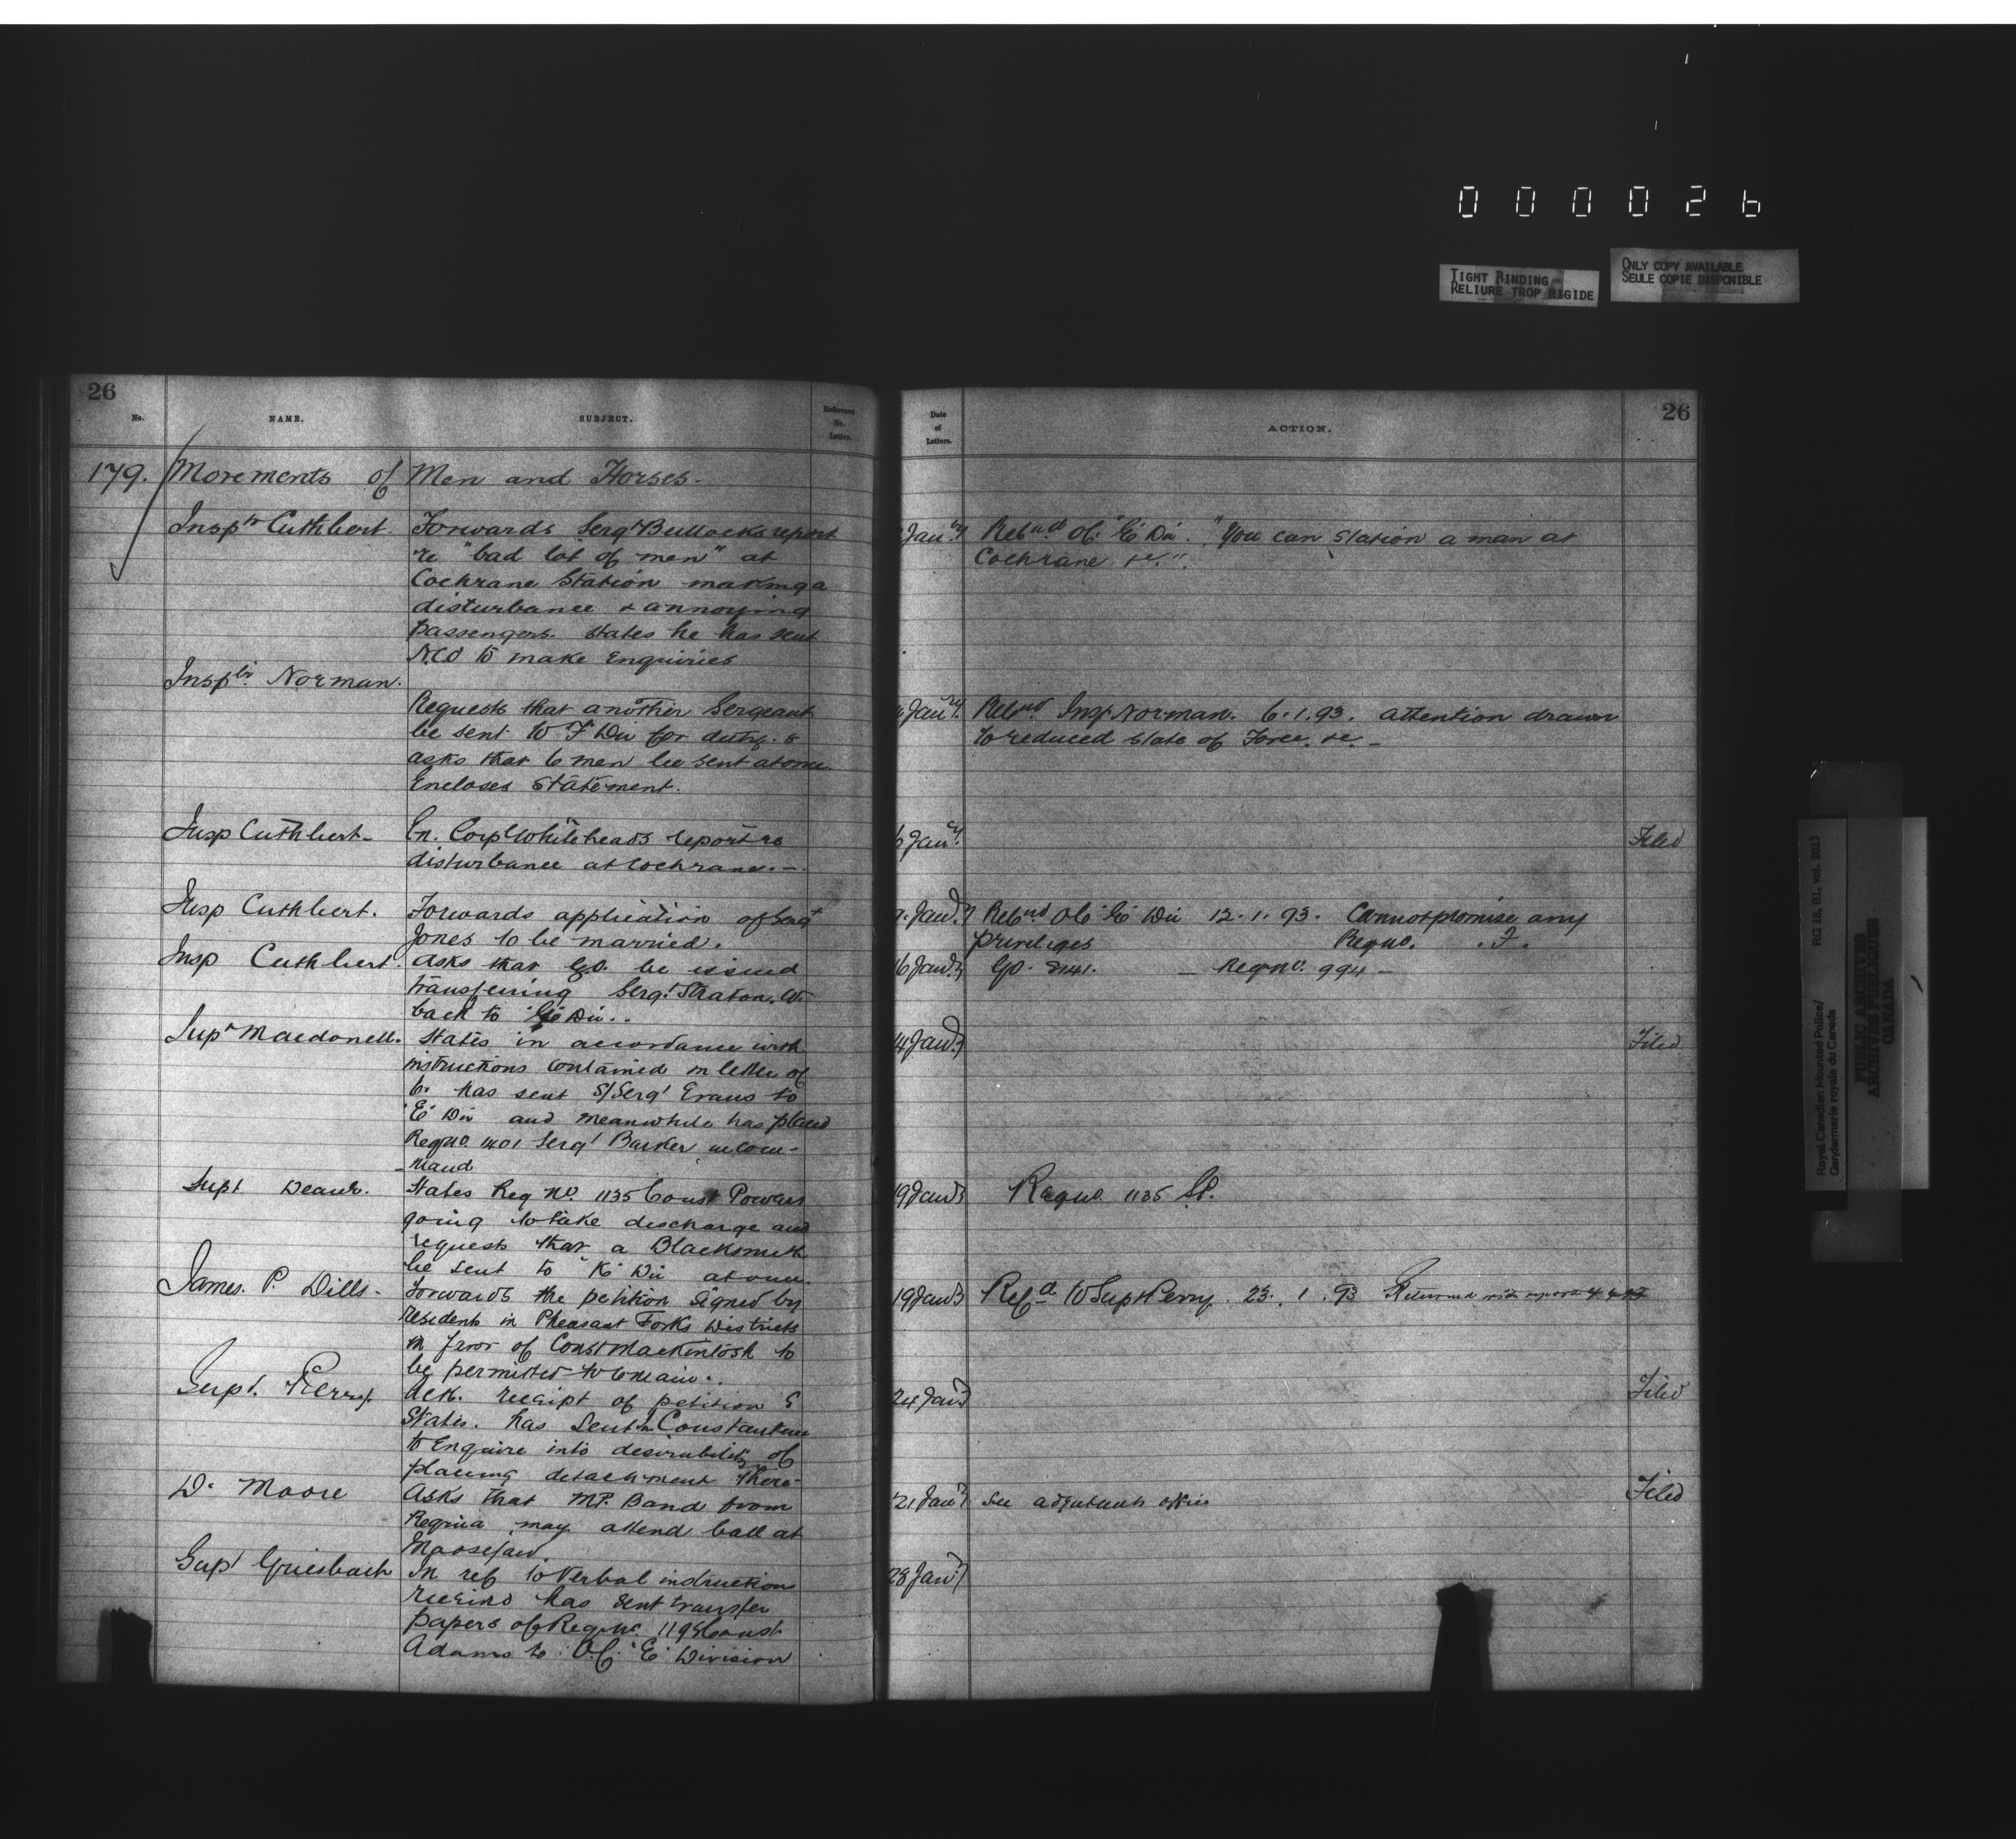 000026
TIGHT BINDING
RELIURE TROP RIGIDE
ONLY COPY AVAILABLE
SEULE COPIE DISPONIBLE
26
No.
NAME.
SUBJECT.
Reference
No.
Letter.
179. Movements of Men and Horses.
Inspr Cuthbert. Forwards Sergt Bullocks report
re "bad lot of men" at
Cochrane Station making a
disturbance & annoying
passengers. States he has sent
N.C.O to make Enquiries
Inspr. Norman.
Requests that another Sergeant
be sent to F Div for duty. &
asks that 6 men be sent at once
Encloses Statement.
Insp Cuthbert - En. Corpl Whiteheads report re
disturbance at Cochrane. -
Insp Cuthbert. Forwards application of Sergt
Jones to be married.
Insp Cuthbert. Asks that G.O. be issued
transferring Sergt Straton. W.
back to Div..
Supt Macdonell. States in accordance with
instructions contained in letter of
has sent S/Sergt Evans to
"E" Div and meanwhile has placed
Regno. 1401 Sergt Barker in Com-
-mand
Supt Deane. States Reg No. 1135 Const Powers
going to take discharge and
requests that a Blacksmith
be sent to "K" Div at once.
James. P. Dills - Forwards the petition signed by
resident in Pheasant Forks Districts
in favor of Const Mackintosh to
be permitted to remain..
Supt. Perry. Ack. receipt of petition &
States. has sent Constantine
to Enquire into desirability of
placing detachment there-
D. Moore Asks that M.P. Band from
Regina may attend ball at
Moosejaw.
Supt Griesbach In ref to Verbal instructions
received has sent transfer
papers of Regno. Const.
Adams to O.C. "E" Division
26
Date
of
Letters.
ACTION.
Jany Retnd. O.C. "E" Div. "You can station a man at
Cochrane &c.".
Jany. Retnd Insp Norman. 6.1.93. attention drawn
to reduced state of Force. &c. -
6 Jany. Filed
9. Jany Retnd O.C. "E" Div 12.1.93. Cannot promise any
privileges Regno. . F.
16 Jan G.O. 8141. - Regno. 994 -
14 Jan Filed
19 Jan Regno. 1135
19 Jan Refd to Supt Perry. 23. 1. 93 Returned with report
24 Jan Filed
21 Jan See adjutants office Filed
28 Jan
Royal Canadian Mounted Police/
Gendarmerie royale du Canada
RG 18, B1, vol. 2013
PUBLIC ARCHIVES
ARCHIVES PUBLIQUES
CANADA